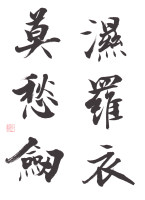 濕羅衣
莫愁劒